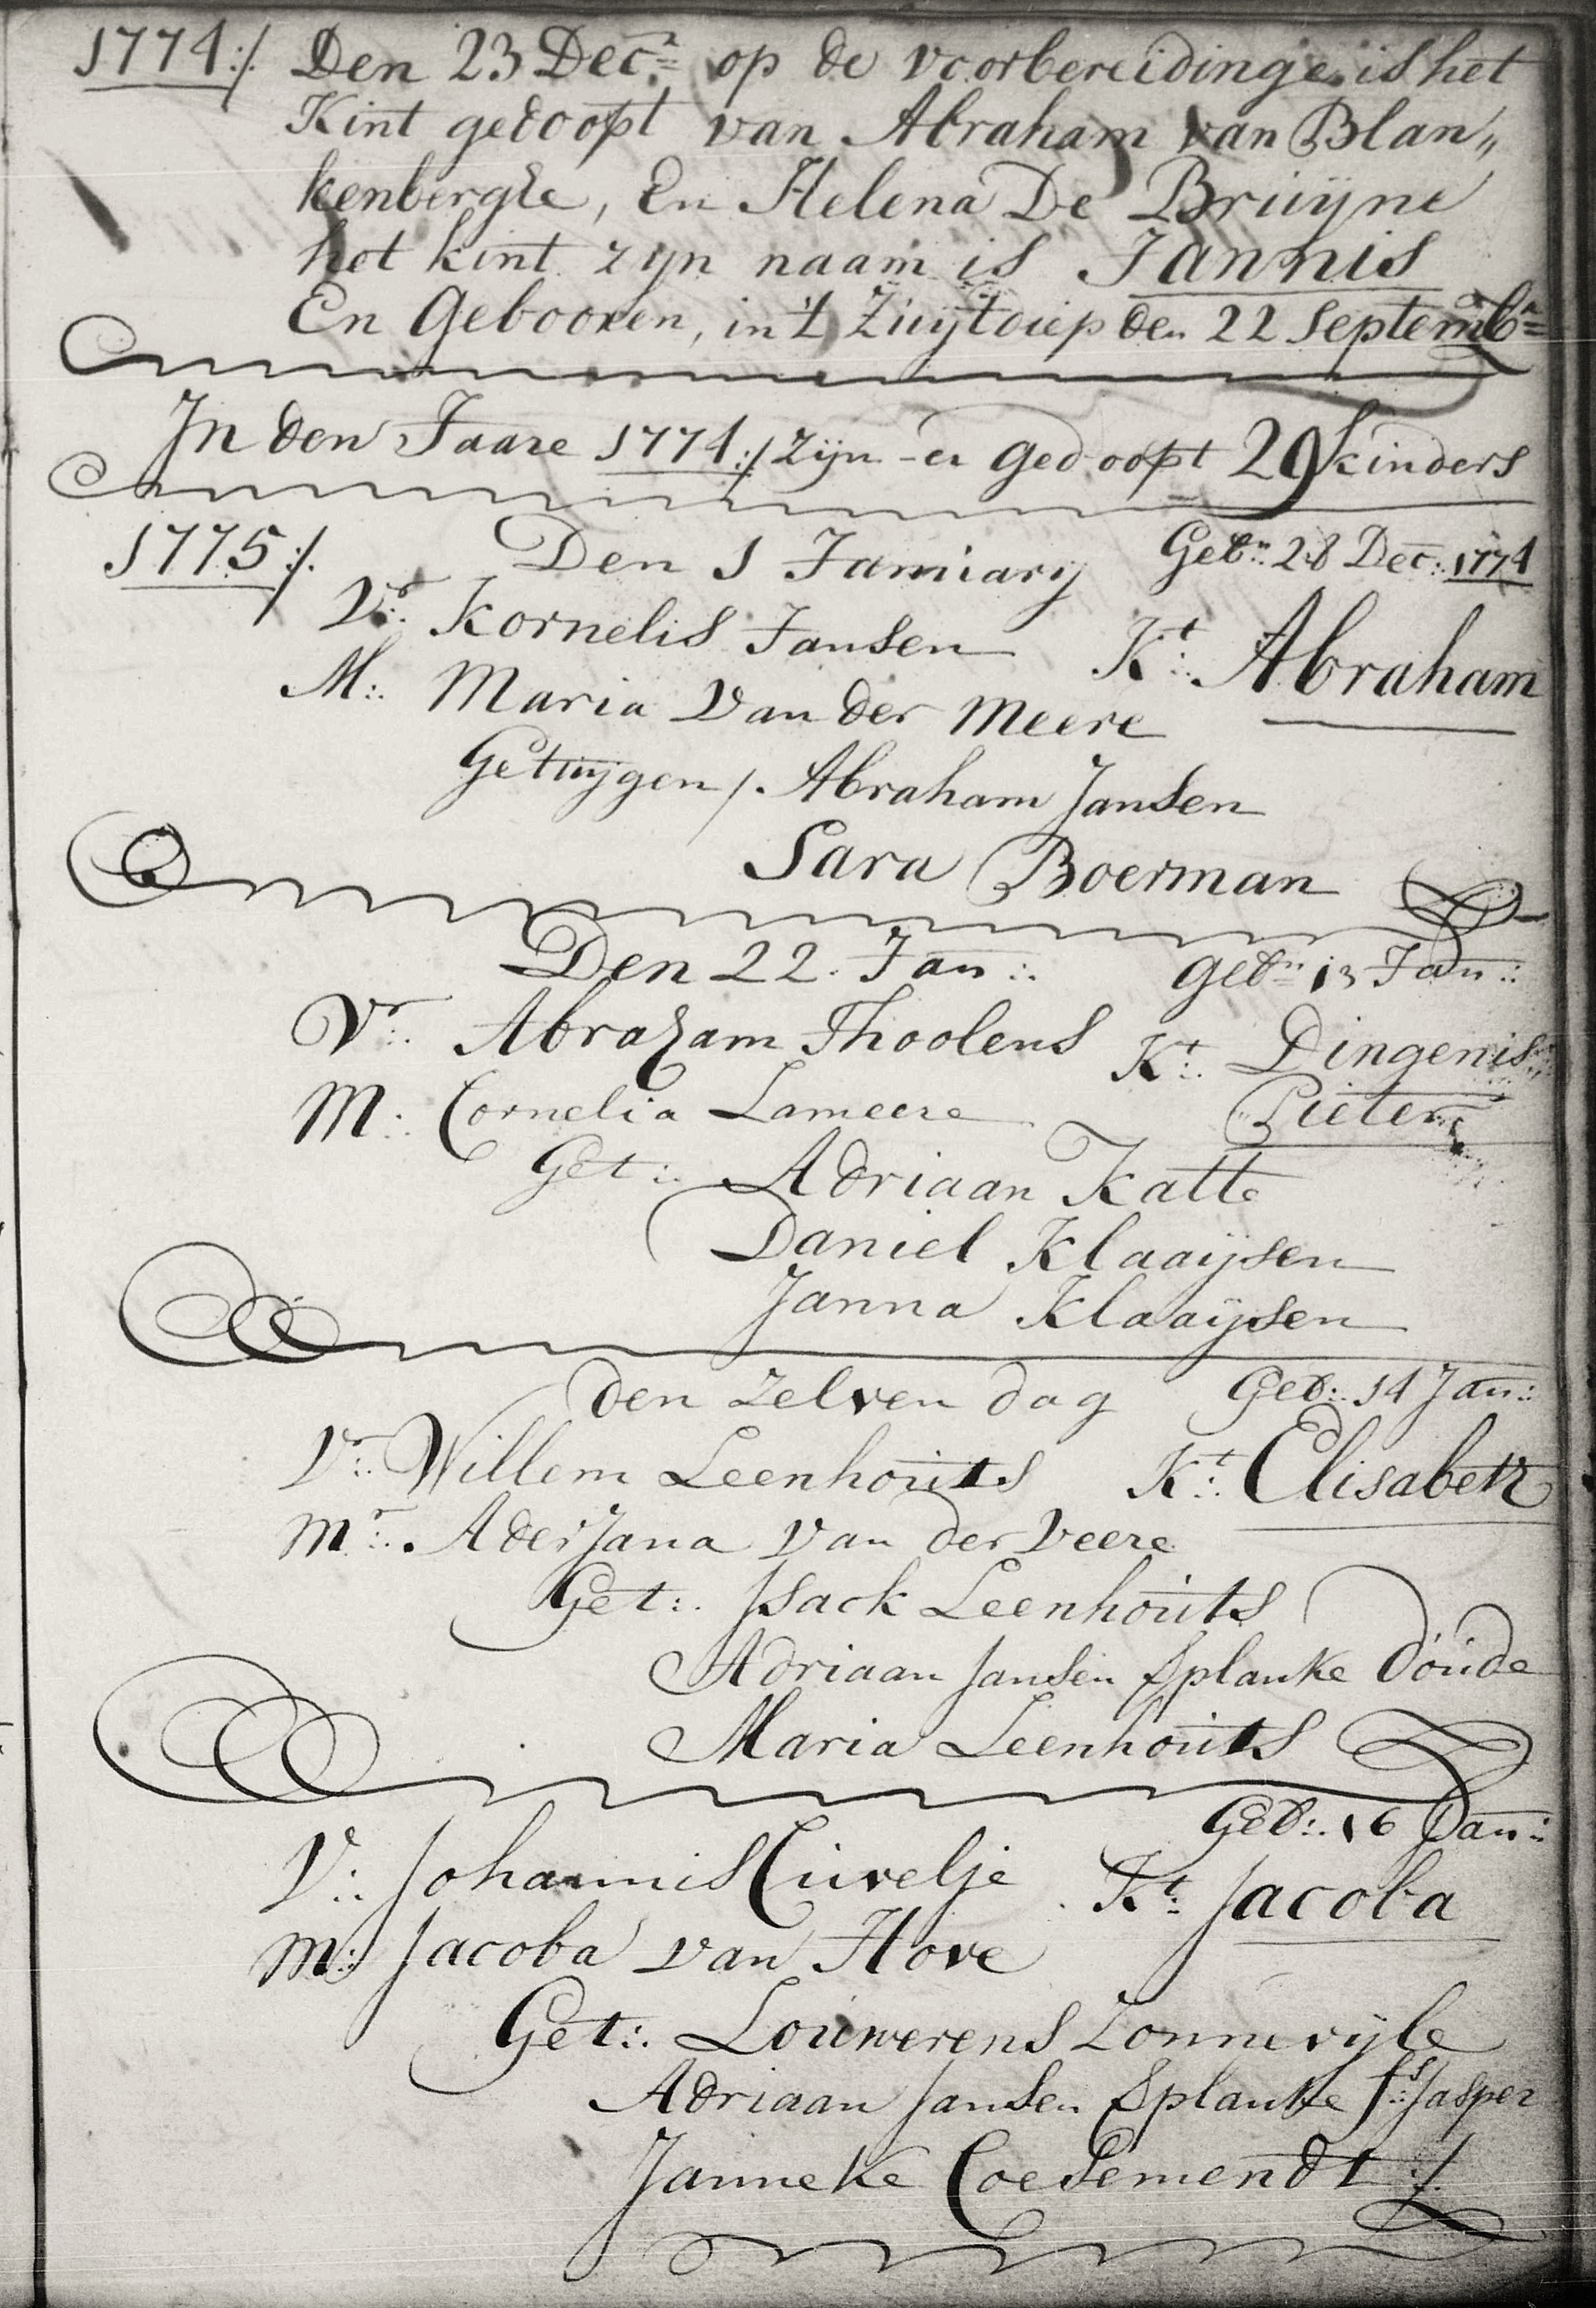 1774:/. Den 23 Decr= op de voorbereidinge is het
Kint gedoopt van Abraham van Blan„
kenberghe, En Helena De Bruijne
het kint zijn naam is Jannis
En Gebooren, in 't Zuijtdiep den 22 Septembr=
In den Jaare 1774:/ zijn er Gedoopt 29 kinders
1775:/. Den 1 Januarij Gebn:: 28 Dec: 1774
Vr: Kornelis Jansen Kt: Abraham
M:. Maria Van der Meere
Getuijgen /. Abraham Jansen
Sara Boerman
Den 22. Jan:: gebn= 13 Jan::
Vr: Abraham Thoolens Kt: Dingenis
M:. Cornelia Lameere Pieter
Get:. Adriaan Katte
Daniel Klaaijsen
Janna Klaaijsen
den zelven dag Geb:. 14 Jan::
Vr:. Willem Leenhouts Kt:. Elisabeth
Mr:. Aderjana Van der Veere
Get:. Isack Leenhouts
Adriaan Jansen Splanke d'oude
Maria Leenhouts
Geb:. 16 Jan::
V:. Johannis Cuvelje Kt: Jacoba
M:. Jacoba van Hove
Get:. Louwerens Zonnevijle
Adriaan Jansen Splanke fs: Jasper
Janneke Coesemendt ./.